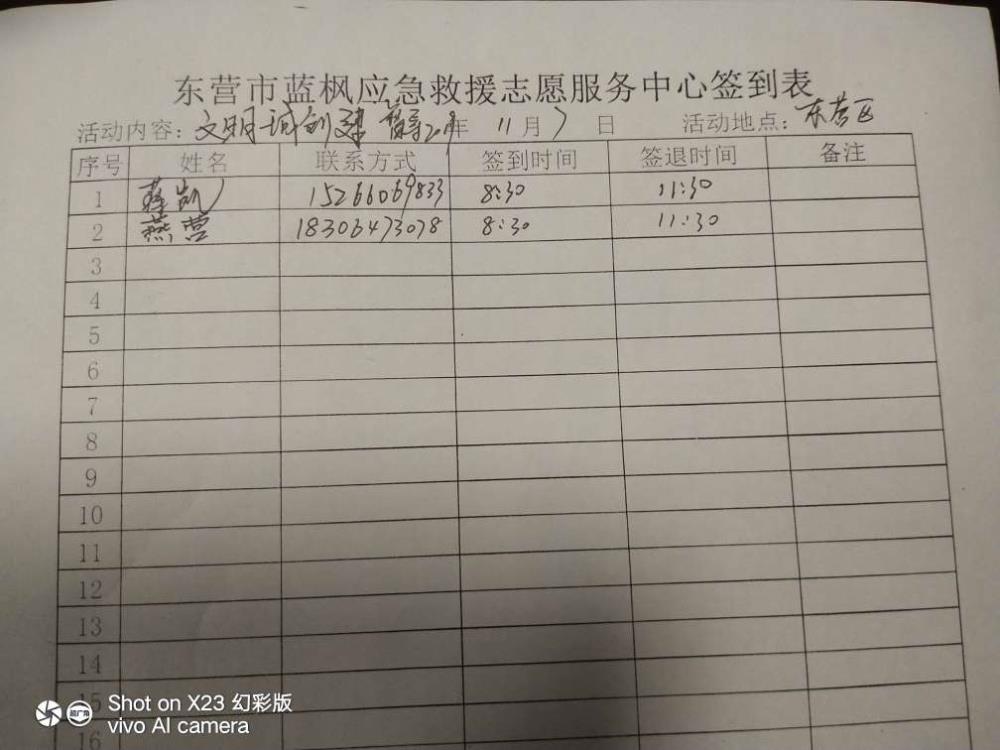 东营市蓝枫应急救援志愿服务中心签到表
活动内容：文明城创建 督导 年 11月7日 活动地点：东营区
序号 姓名 联系方式 签到时间 签退时间 备注
1 薛凯 15266069833 8:30 11:30
2 燕营 18306473078 8:30 11:30
3
4
5
6
7
8
9
10
11
12
13
14
15
16
Shot on X23 幻彩版
vivo AI camera